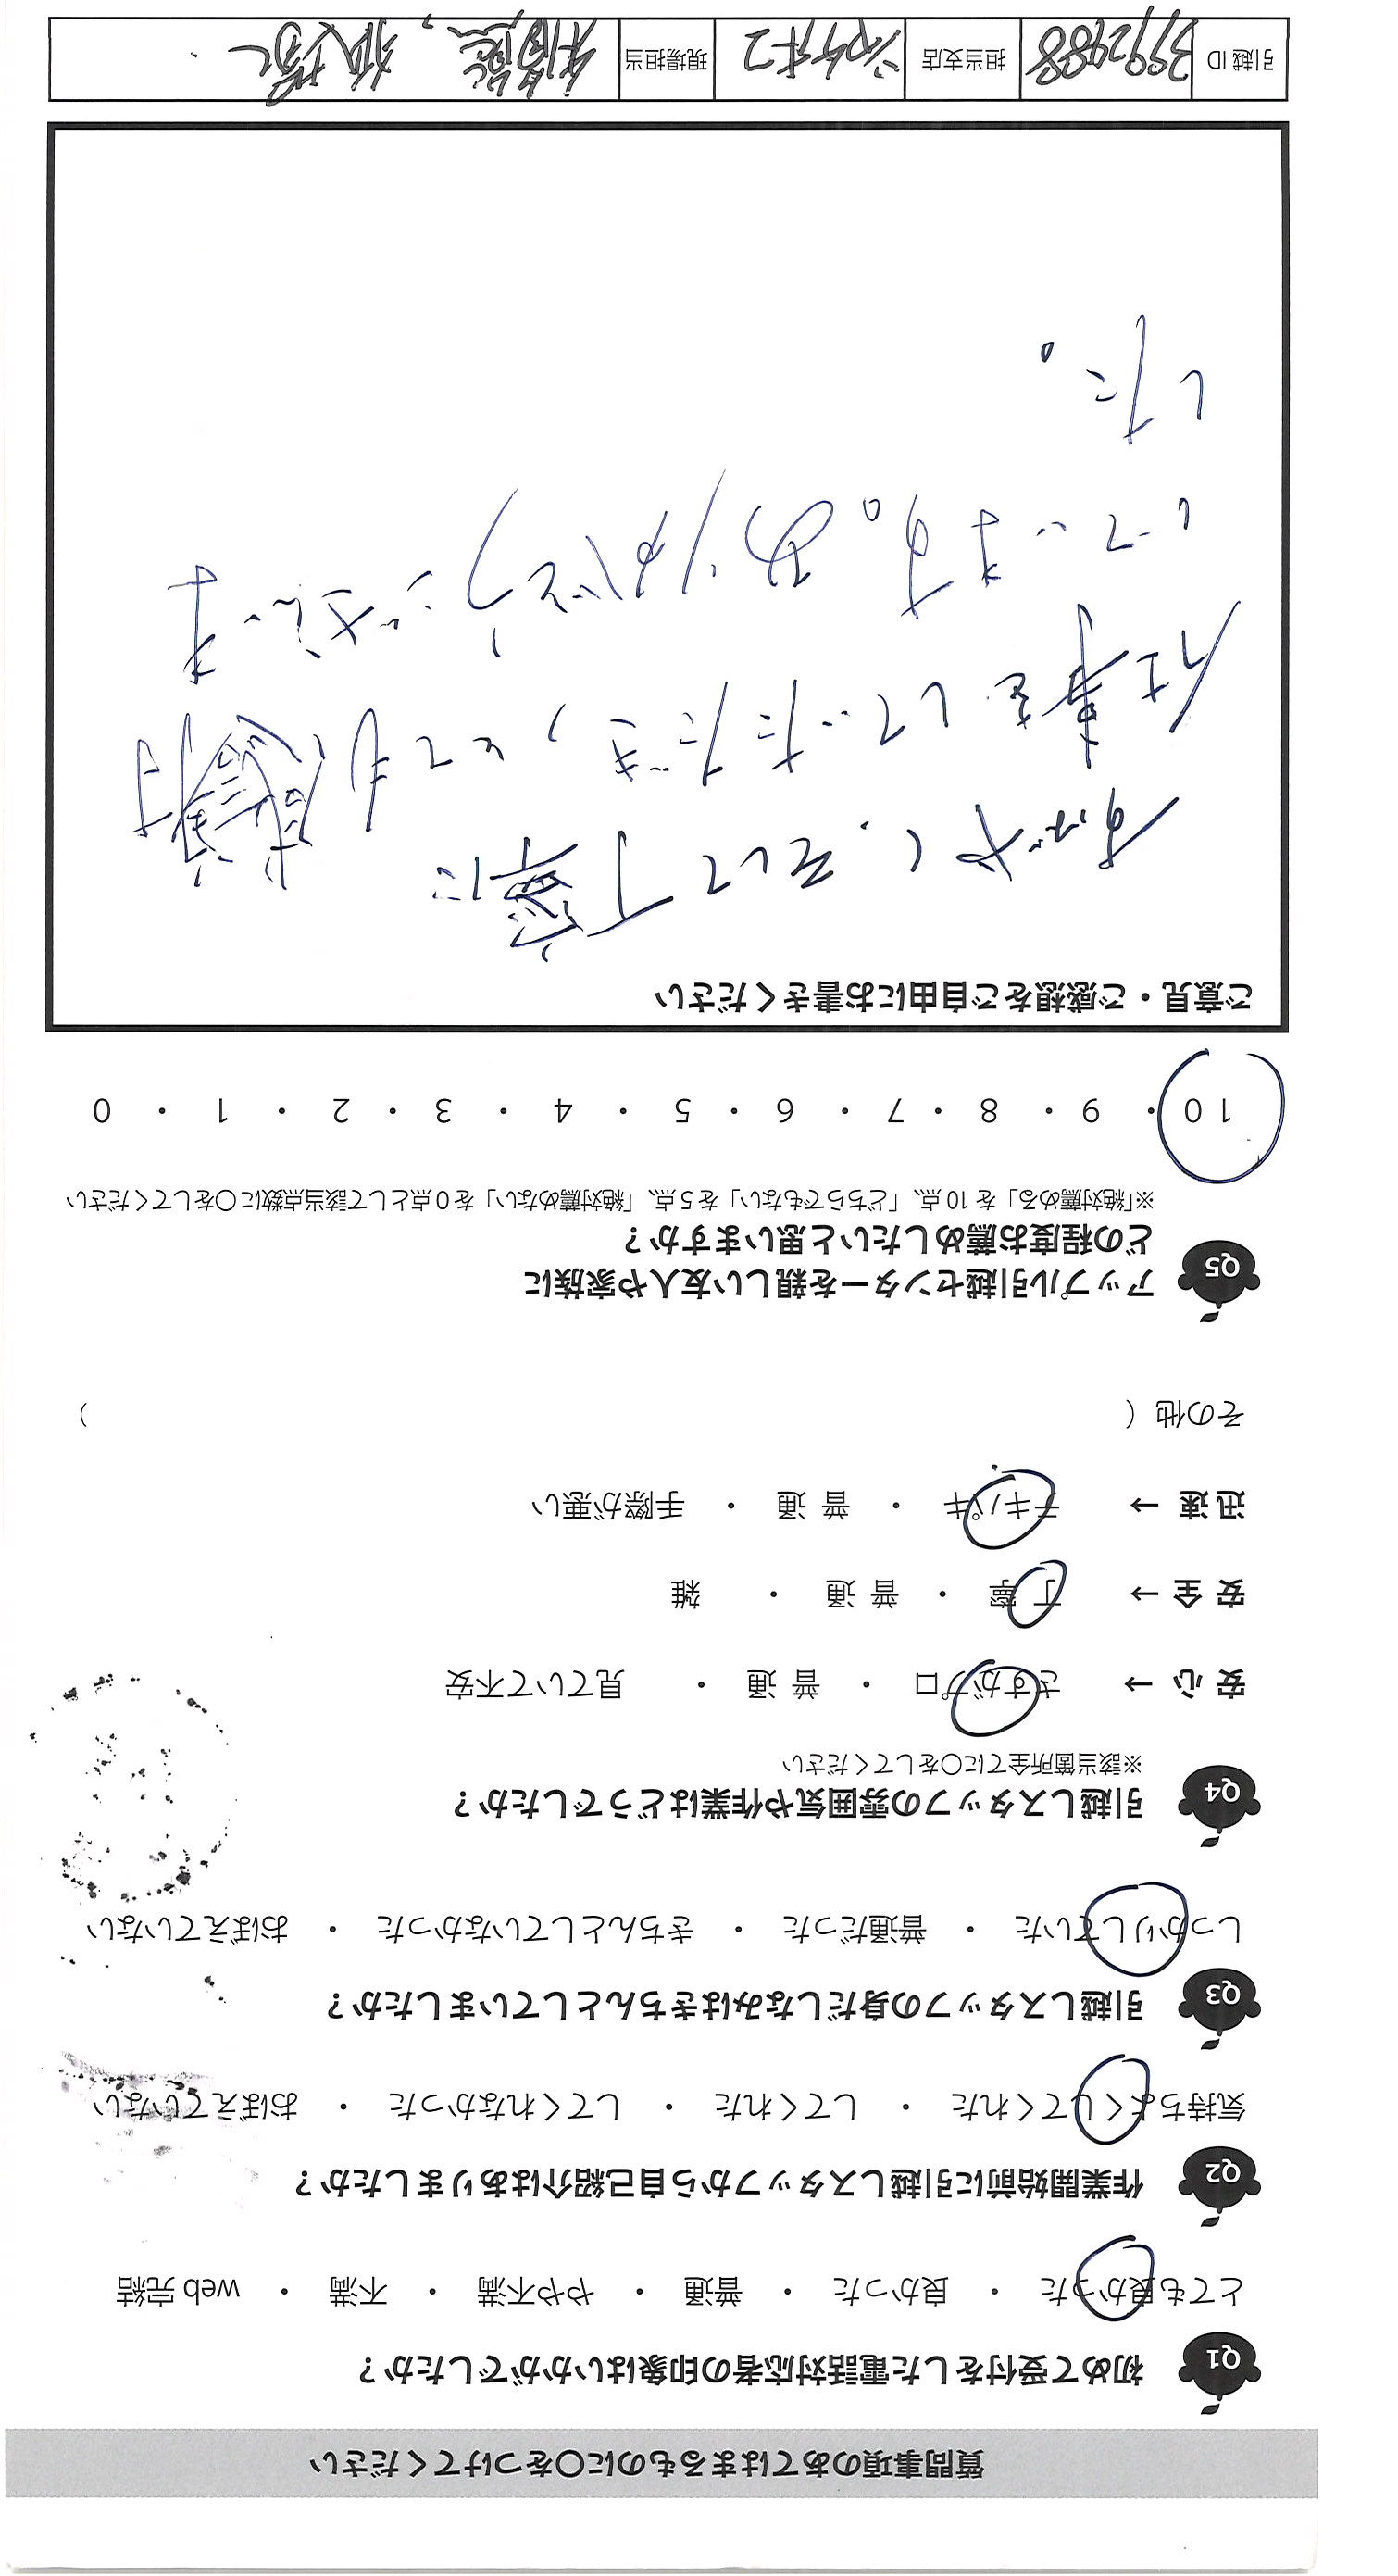 質問事項のあてはまるものに〇をつけてください
Q1 初めて受付をした電話対応者の印象はいかがでしたか？
とても良かった ・ 良かった ・ 普通 ・ やや不満 ・ 不満 ・ web 完結
Q2 作業開始前に引越しスタッフから自己紹介はありましたか？
気持ちよくしてくれた ・ してくれた ・ してくれなかった ・ おぼえていない
Q3 引越しスタッフの身だしなみはきちんとしていましたか？
しっかりしていた ・ 普通だった ・ きちんとしていなかった ・ おぼえていない
Q4 引越しスタッフの雰囲気や作業はどうでしたか？
※該当箇所全てに〇をしてください
安 心 → さすがプロ ・ 普 通 ・ 見ていて不安
安 全 → 丁 寧 ・ 普 通 ・ 雑
迅 速 → テキパキ ・ 普 通 ・ 手際が悪い
その他（ ）
Q5 アップル引越センターを親しい友人や家族に
どの程度お薦めしたいと思いますか？
※「絶対薦める」を 10 点、「どちらでもない」を 5 点、「絶対薦めない」を 0 点として該当点数に〇をしてください
10 ・ 9 ・ 8 ・ 7 ・ 6 ・ 5 ・ 4 ・ 3 ・ 2 ・ 1 ・ 0
ご意見・ご感想をご自由にお書きください
すばやく、そして丁寧に
仕事をしていただき、とても感謝
しています。ありがとうございま
した。
引越 ID 3992988 担当支店 現場担当